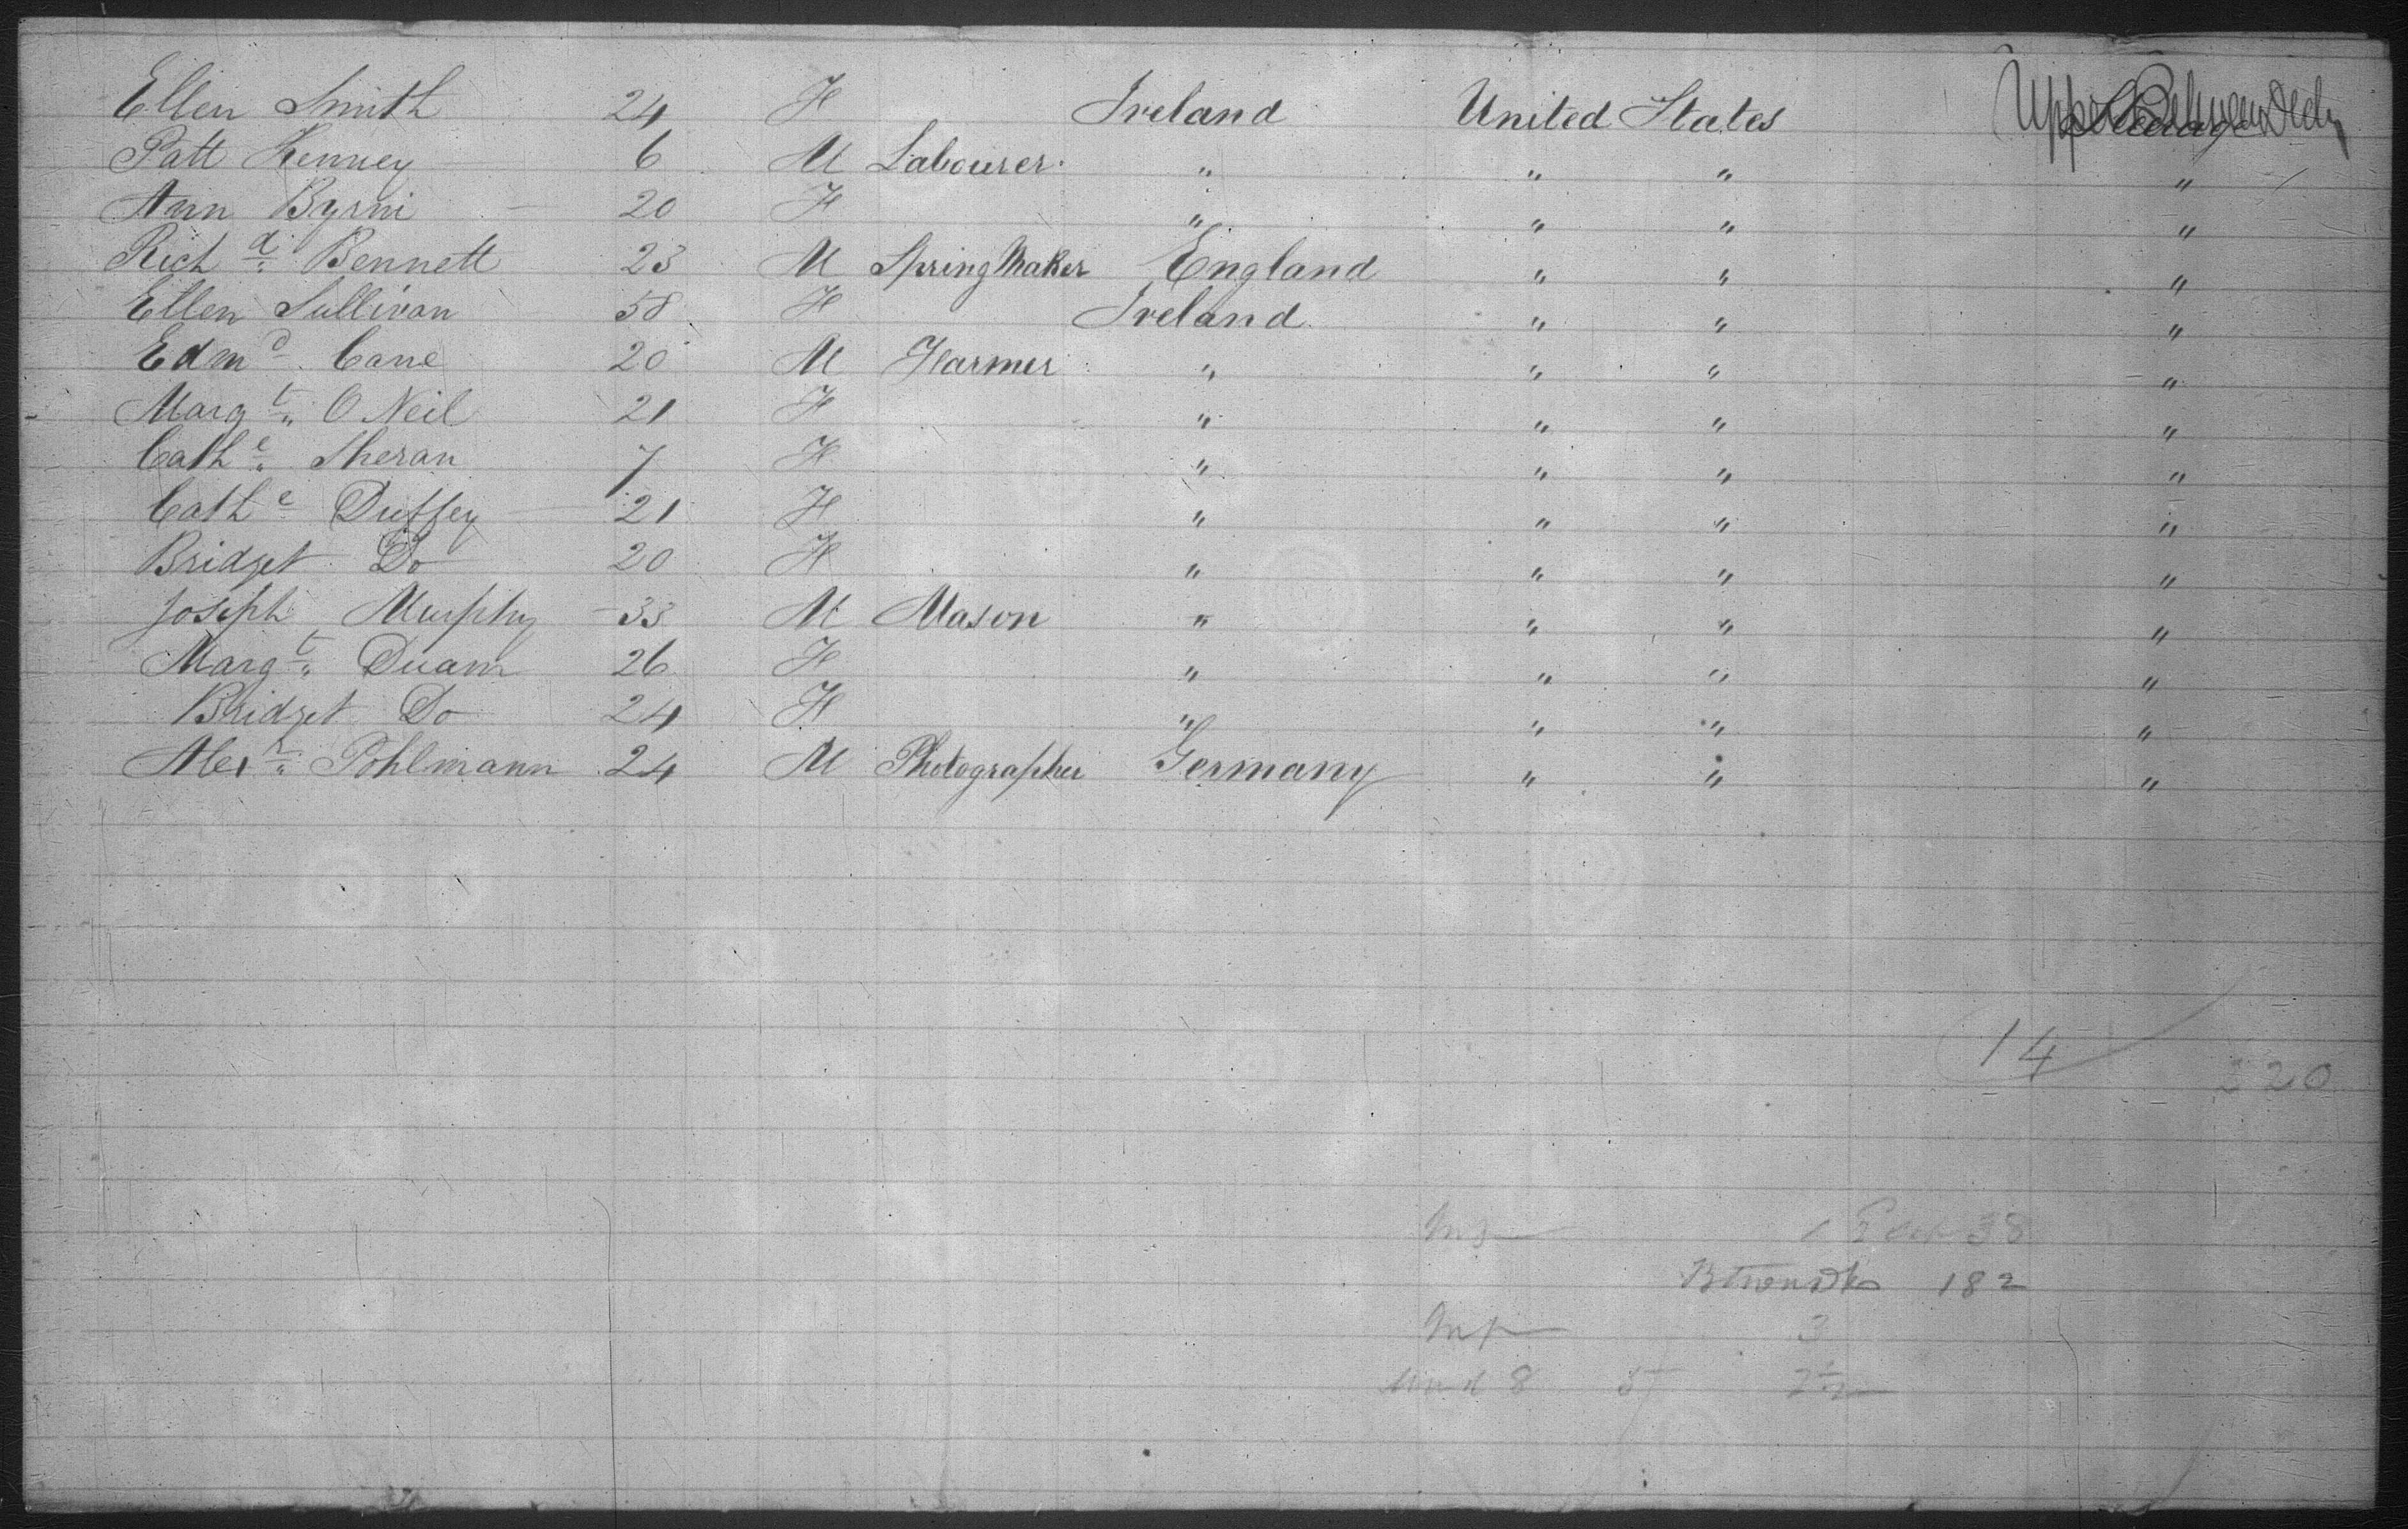 Ellen Smith 24 F Ireland United States Upper Between Deck
Patt Kenney 6 M Labourer " " " "
Ann Byrni 20 F " " " "
Rich d Bennett 23 M Spring Maker England " " "
Ellen Sullivan 58 F Ireland " " "
Edm d Cane 20 M Farmer " " " "
Marg t O Neil 21 F " " " "
Cath e Sheran 7 F " " " "
Cath e Duffey 21 F " " " "
Bridget Do 20 F " " " "
Joseph Murphy 33 M Mason " " " "
Marg t Duann 26 F " " " "
Bridget Do 24 F " " " "
Alex r Pohlmann 24 M Photographer Germany " " "
14
220
38
182
3